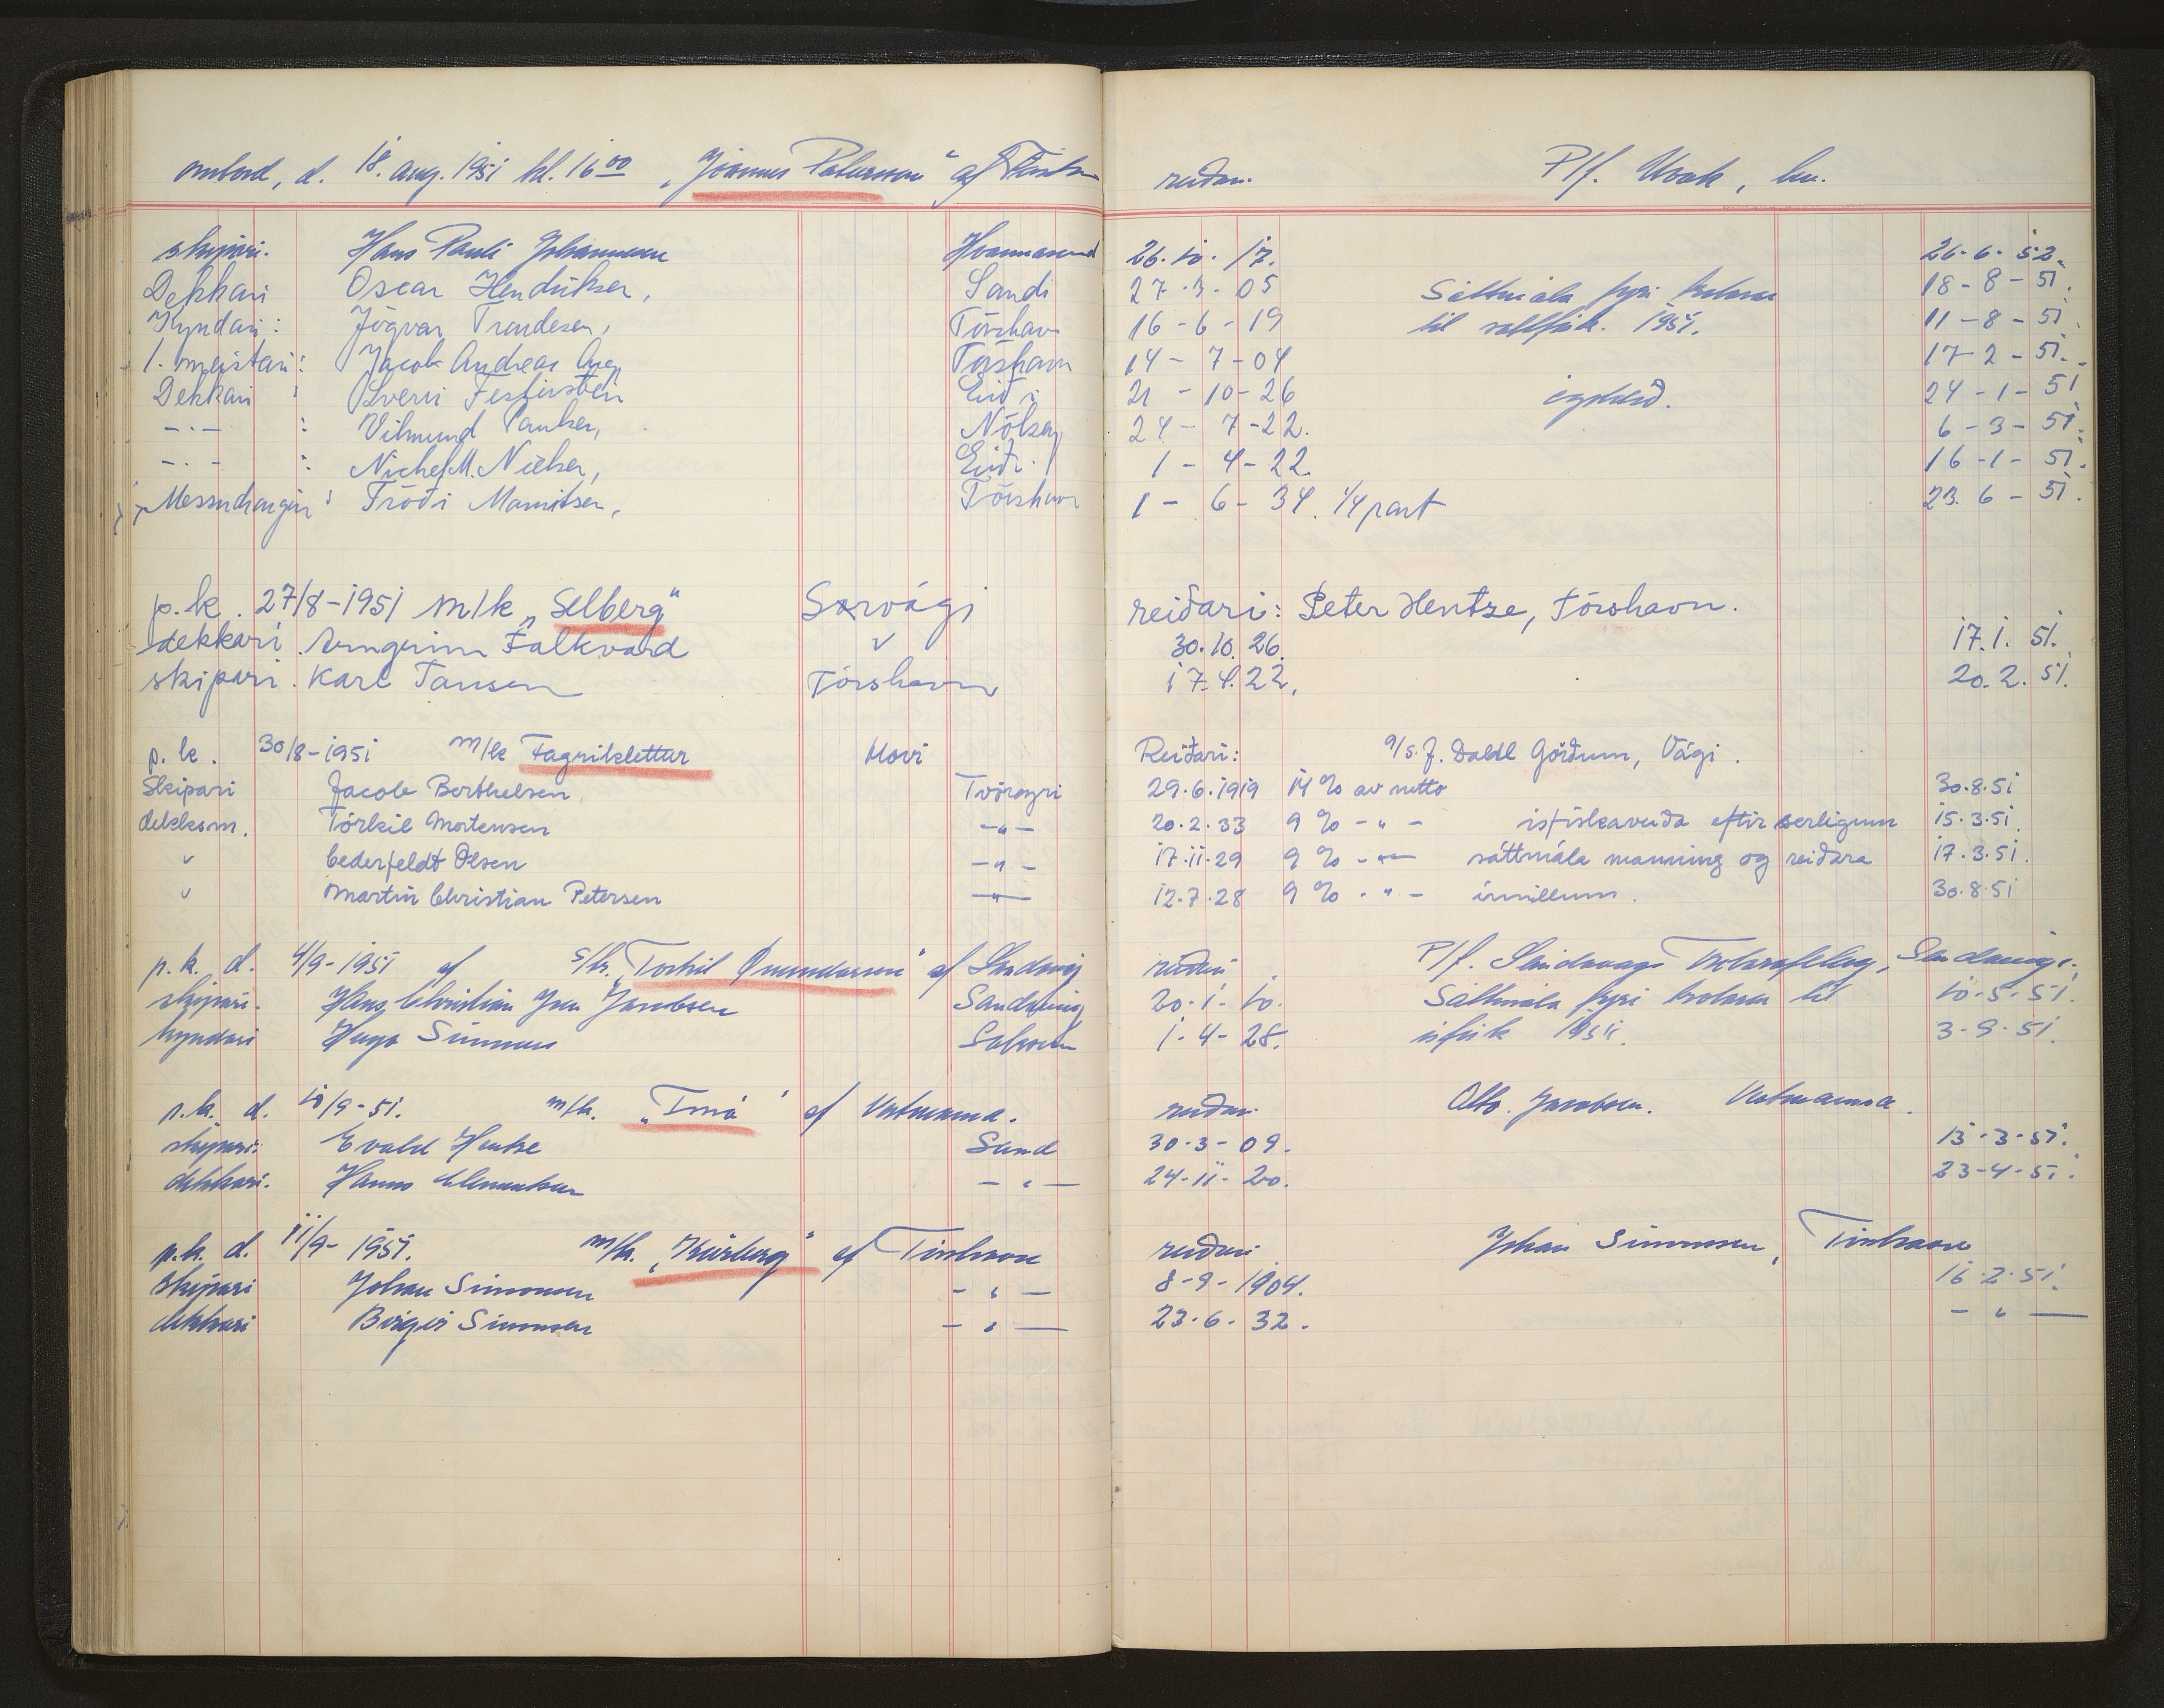 ombord, d. 18. aug. 1951 kl. 16 00 "Jóannes Patursson" af Tórshavn reiðari P/f. , her.
skipari. Hans Pauli Johannesen Hvannasund 26.10.17. 26-6-52.
Dekkari Oscar Hendriksen, Sandi 27-3-05 Sáttmála fyri trolara 18-8-51.
Kyndari: Jógvan Trondesen, Tórshavn 16-6-19 til saltfisk. 1951. 11-8-51.
1. meistari: Jacob Andreas Tórshavn 14-7-04 17-2-51.
Dekkari : Sverri Festirstein Eiði 21-10-26 24-1-51
-"- : Vilmund Paulsen, Nólsoy 24-7-22. 6-3-51.
-"- : Nichel M. Nielsen, Eiði. 1-4-22. 16-1-51.
Messudrongin : Tróði Mouritsen, Tórshavn 1-6-34. 1/4 part 23.6-51.
p.k. 27/8-1951 m/k "Selberg" Sørvági reiðari: Peter Hentze, Tórshavn.
dekkari. Arngrim Falkvard " 30.10.26. 17.1.51.
skipari. Karl Jansen Tórshavn 17.4.22. 20.2.51.
p.k. 30/8-1951 m/k Fagriklettur Hovi Reiðari: a/s. J. Dahl Görðum, Vági.
Skipari Jacob Berthelsen Tvöroyri 29.6.1919 14% av netto 30.8.51
dekksm. Tórkil Mortensen -"- 20.2.33 9% -"- isfiskaveiða eftir serligum 15.3.51.
" Cederfeldt Olsen -"- 17.11.29 9% -"- sáttmála manning og reiðara 17.3.51.
" Martin Christian Petersen -"- 12.7.28 9% -"- ímillum. 30.8.51
p.k. d. 4/9-1951 af s/tr. "Torkil Onundarson" af Sandavág reiðari P/f. Sandavags Trolarafelag, Sandavági.
skipari. Hans Christian Jacobsen Sandavág 20-1-10. Sáttmála fyri trolara til 10-5-51.
kyndari Hugo Simmus 1-4-28. isfisk 1951. 3-9-51.
p.k. d. 10/9-51. m/k. "Tmá" af Vestmanna. reiðari Otto Jacobsen. Vestmanna.
skipari: Evald Hentze Sand 30-3-09. 13-3-51.
dekkari. Hanus Clementsen -"- 24-11-20. 23-4-51.
p.k. d. 11/9-1951. m/k. "Kúrberg" af Tórshavn reiðari Johan Simonsen, Tórshavn
Skipari Johan Simonsen -"- 8-9-1904. 16-2-51.
dekkari Birgir Simonsen -"- 23-6-32. -"-